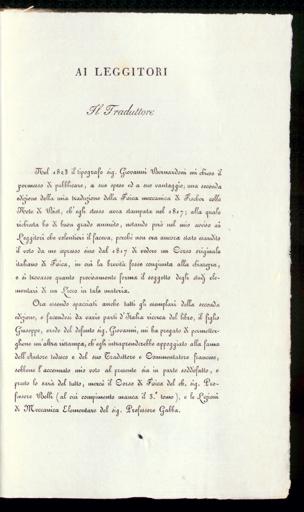 AI LEGGITORI
Il Traduttore
Nel 1823 il tipografo sig. Giovanni Bernardoni mi chiese il
permesso di pubblicare, a sue spese ed a suo vantaggio, una seconda
edizione della mia traduzione della Fisica meccanica di Fischer colle
Note di Biot, ch'egli stesso avea stampata nel 1817; alla quale
richiesta ho di buon grado annuito, notando però nel mio avviso ai
Leggitori che volentieri il faceva, perchè non era ancora stato esaudito
il voto da me espresso sino dal 1817 di vedere un Corso originale
italiano di Fisica, in cui la brevità fosse congiunta alla chiarezza,
e si trovasse quanto precisamente forma il soggetto degli studj ele-
mentari di un Liceo in tale materia.
Ora essendo spacciati anche tutti gli esemplari della seconda
edizione, e facendosi da varie parti d'Italia ricerca del libro, il figlio
Giuseppe, erede del defunto sig. Giovanni, mi ha pregato di permetter-
gliene un'altra ristampa, ch'egli intraprenderebbe appoggiato alla fama
dell'Autore tedesco e del suo Traduttore e Commentatore francese,
sebbene l'accennato mio voto al presente sia in parte soddisfatto, e
presto lo sarà del tutto, mercè il Corso di Fisica del ch. sig. Pro-
fessore Belli (al cui compimento manca il 3.° tomo), e le Lezioni
di Meccanica Elementare del sig. Professore Gabba.